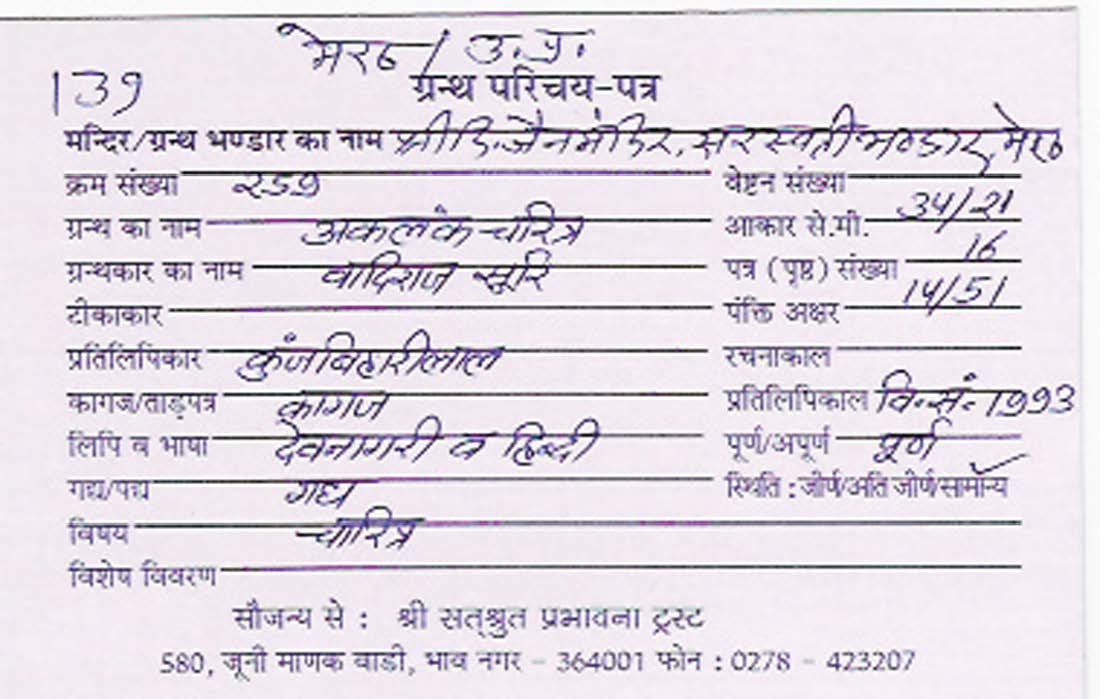 मेरठ / उ.प्र.
139 ग्रन्थ परिचय-पत्र
मन्दिर/ग्रन्थ भण्डार का नाम श्री दि. जैन मंदिर, सरस्वती भण्डार, मेरठ
क्रम संख्या 259 वेष्टन संख्या
ग्रन्थ का नाम अकलंक चरित्र आकार से.मी. 34/21
ग्रन्थकार का नाम वादिराज सूरि पत्र (पृष्ठ) संख्या 16
टीकाकार पंक्ति अक्षर 14/51
प्रतिलिपिकार कुंजविहारीलाल रचनाकाल
कागज/ताड़पत्र कागज प्रतिलिपिकाल वि.सं. 1993
लिपि व भाषा देवनागरी व हिन्दी पूर्ण/अपूर्ण पूर्ण
गद्य/पद्य गद्य स्थिति : जीर्ण/अति जीर्ण/सामान्य ✓
विषय चारित्र
विशेष विवरण
सौजन्य से : श्री सत्श्रुत प्रभावना ट्रस्ट
580, जूनी माणक वाडी, भाव नगर - 364001 फोन : 0278 - 423207